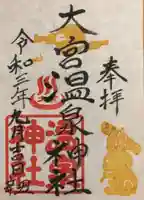 奉拝
大宮温泉神社
令和三年九月吉日
温泉神社